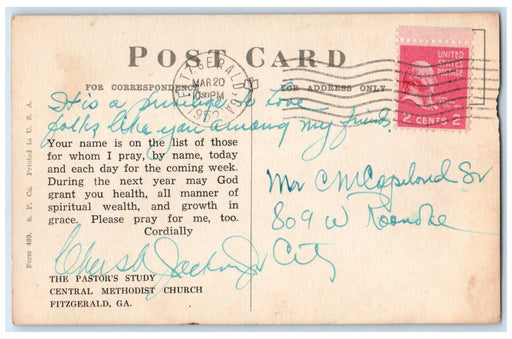 POST CARD
FOR CORRESPONDENCE
FOR ADDRESS ONLY
FITZGERALD, GA.
MAR 20
1030 PM
1952
UNITED STATES POSTAGE
2 CENTS 2
It is a privilege to have
folks like you among my friends.
Your name is on the list of those
for whom I pray, by name, today
and each day for the coming week.
During the next year may God
grant you health, all manner of
spiritual wealth, and growth in
grace. Please pray for me, too.
Cordially
Jackson Jr
THE PASTOR'S STUDY
CENTRAL METHODIST CHURCH
FITZGERALD, GA.
Mr C M Copeland Sr
809 W Roanoke
City
Form 499. S. P. Co. Printed in U. S. A.